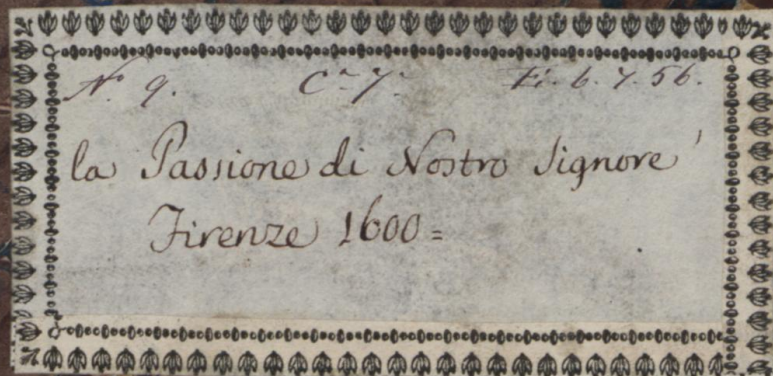 N. 9. C.a 7. Fi. 6. 7. 56.
la Passione di Nostro Signore
Firenze 1600=